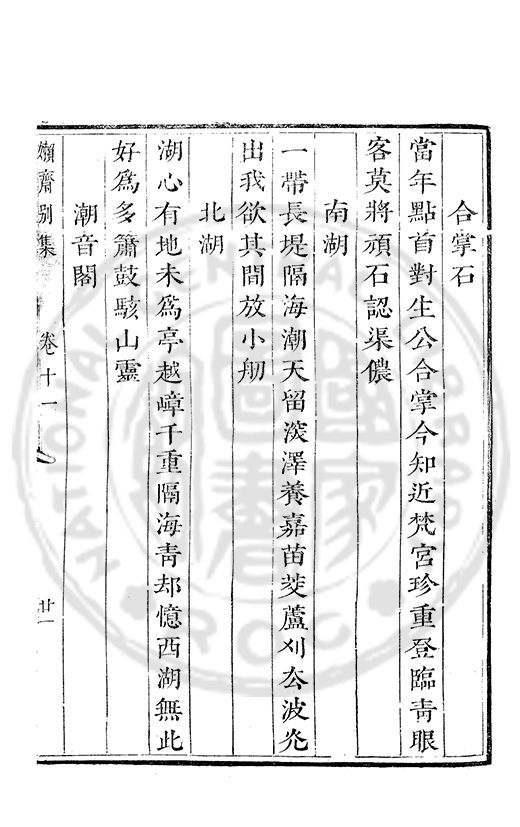 合掌石
當年點首對生公合掌今知近梵宮珍重登臨青眼
客莫將頑石認渠儂
南湖
一帶長堤隔海潮天留淡澤養嘉苗茭蘆刈去波光
出我欲其間放小舠
北湖
湖心有地未為亭越嶂千重隔海青却憶西湖無此
好為多簫鼓駭山靈
潮音閣
嬾齋別集
卷十一
廿一